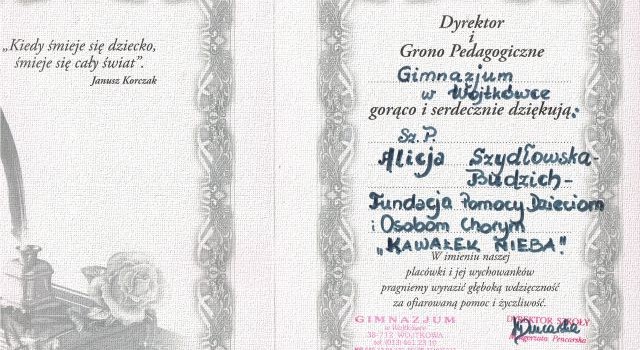 „Kiedy śmieje się dziecko,
śmieje się cały świat”.
Janusz Korczak
Dyrektor
i
Grono Pedagogiczne
Gimnazjum
w Wojtkówce
gorąco i serdecznie dziękują:
Sz. P.
Alicja Szydłowska-
Budzich-
Fundacja Pomocy Dzieciom
i Osobom Chorym
„KAWAŁEK NIEBA"
W imieniu naszej
placówki i jej wychowanków
pragniemy wyrazić głęboką wdzięczność
za ofiarowaną pomoc i życzliwość.
GIMNAZJUM
w Wojtkówce
38-712 WOJTKOWA
tel. (013) 461 23 10
DYREKTOR SZKOŁY
Małgorzata Pencarska